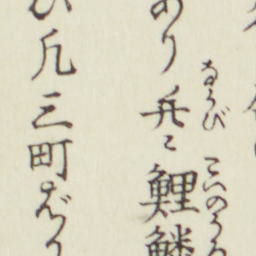 ならび こいのうろ
あり 并ニ 鯉鱗
凡三町ばか